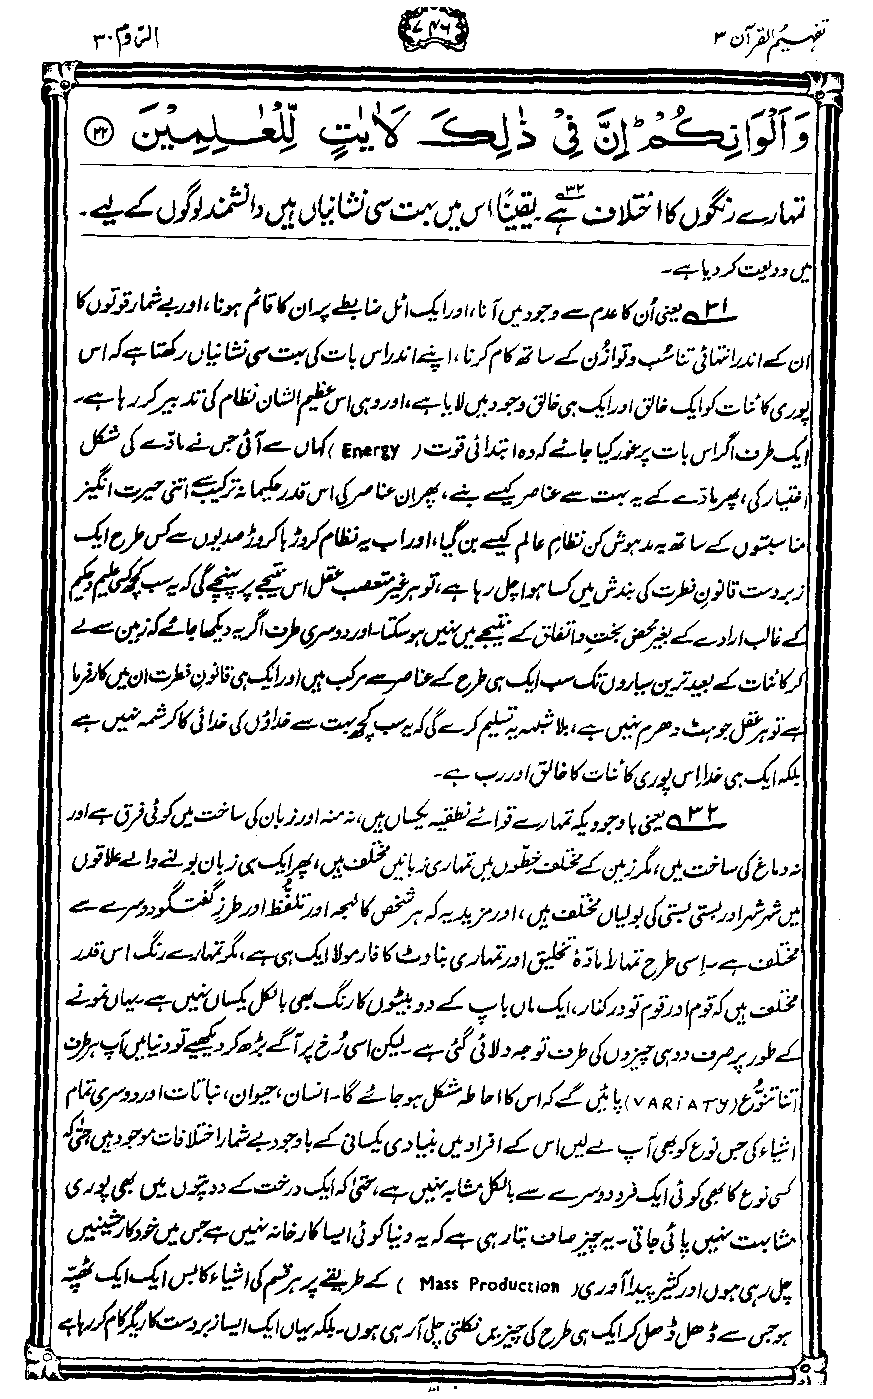 تفہیم القرآن ۳
۷۴۶
الرّوم ۳۰
وَاَلْوَانِكُمْ ؕ اِنَّ فِیْ ذٰلِكَ لَاٰیٰتٍ لِّلْعٰلِمِیْنَ ﴿۲۲﴾
تمہارے رنگوں کا اختلاف ہے۳۲۔ یقیناً اس میں بہت سی نشانیاں ہیں دانشمند لوگوں کے لیے۔
میں ودیعت کر دیا ہے۔
۳۱؎ یعنی اُن کا عدم سے وجود میں آنا، اور ایک اٹل ضابطے پر ان کا قائم ہونا، اور بے شمار قوتوں کا
ان کے اندر انتہائی تناسُب و توازُن کے ساتھ کام کرنا، اپنے اندر اس بات کی بہت سی نشانیاں رکھتا ہے کہ اس
پوری کائنات کو ایک خالق اور ایک ہی خالق وجود میں لایا ہے، اور وہی اس عظیم الشان نظام کی تدبیر کر رہا ہے۔
ایک طرف اگر اس بات پر غور کیا جائے کہ وہ ابتدائی قوت (Energy) کہاں سے آئی جس نے مادّے کی شکل
اختیار کی، پھر مادّے کے یہ بہت سے عناصر کیسے بنے، پھر ان عناصر کی اس قدر حکیمانہ ترکیب سے اتنی حیرت انگیز
مناسبتوں کے ساتھ یہ مدہوش کن نظامِ عالم کیسے بن گیا، اور اب یہ نظام کروڑہا کروڑ صدیوں سے کس طرح ایک
زبردست قانونِ فطرت کی بندش میں کسا ہوا چل رہا ہے، تو ہر غیر متعصب عقل اس نتیجے پر پہنچے گی کہ یہ سب کچھ کسی علیم و حکیم
کے غالب ارادے کے بغیر محض بخت و اتفاق کے نتیجے میں نہیں ہو سکتا۔ اور دوسری طرف اگر یہ دیکھا جائے کہ زمین سے لے
کر کائنات کے بعید ترین سیاروں تک سب ایک ہی طرح کے عناصر سے مرکب ہیں اور ایک ہی قانونِ فطرت ان میں کارفرما
ہے تو ہر عقل جو ہٹ دھرم نہیں ہے، بلاشبہہ یہ تسلیم کرے گی کہ یہ سب کچھ بہت سے خداؤں کی خدائی کا کرشمہ نہیں ہے
بلکہ ایک ہی خدا اِس پوری کائنات کا خالق اور رب ہے۔
۳۲؎ یعنی باوجود یکہ تمہارے قوائے نطقیہ یکساں ہیں، نہ منہ اور زبان کی ساخت میں کوئی فرق ہے اور
نہ دماغ کی ساخت میں، مگر زمین کے مختلف خطّوں میں تمہاری زبانیں مختلف ہیں، پھر ایک ہی زبان بولنے والے علاقوں
میں شہر شہر اور بستی بستی کی بولیاں مختلف ہیں، اور مزید یہ کہ ہر شخص کا لہجہ اور تلفّظ اور طرزِ گفتگو دوسرے سے
مختلف ہے۔ اِسی طرح تمہارا مادّۂ تخلیق اور تمہاری بناوٹ کا فارمولا ایک ہی ہے، مگر تمہارے رنگ اس قدر
مختلف ہیں کہ قوم اور قوم تو درکنار، ایک ماں باپ کے دو بیٹوں کا رنگ بھی بالکل یکساں نہیں ہے۔ یہاں نمونے
کے طور پر صرف دو ہی چیزوں کی طرف توجہ دلائی گئی ہے۔ لیکن اسی رُخ پر آگے بڑھ کر دیکھیے تو دنیا میں آپ ہر طرف
اتنا تنوُّع (VARiATY) پائیں گے کہ اس کا احاطہ مشکل ہو جائے گا۔ انسان، حیوان، نباتات اور دوسری تمام
اشیاء کی جس نوع کو بھی آپ لے لیں اس کے افراد میں بنیادی یکسانی کے باوجود بے شمار اختلافات موجود ہیں حتّٰی کہ
کسی نوع کا بھی کوئی ایک فرد دوسرے سے بالکل مشابہ نہیں ہے، حتیٰ کہ ایک درخت کے دو پتوں میں بھی پوری
مشابہت نہیں پائی جاتی۔ یہ چیز صاف بتا رہی ہے کہ یہ دنیا کوئی ایسا کارخانہ نہیں ہے جس میں خودکار مشینیں
چل رہی ہوں اور کثیر پیداآوری (Mass Production) کے طریقے پر ہر قسم کی اشیاء کا بس ایک ایک ٹھپّہ
ہو جس سے ڈھل ڈھل کر ایک ہی طرح کی چیزیں نکلتی چلی آ رہی ہوں۔ بلکہ یہاں ایک ایسا زبردست کاریگر کام کر رہا ہے